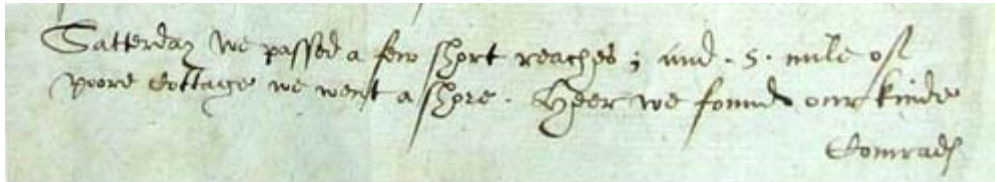 Satterday we passed a few short reaches ; and . 5 . mile of
poore Cottage we went a shore . Heer we found our kinde
Comrades